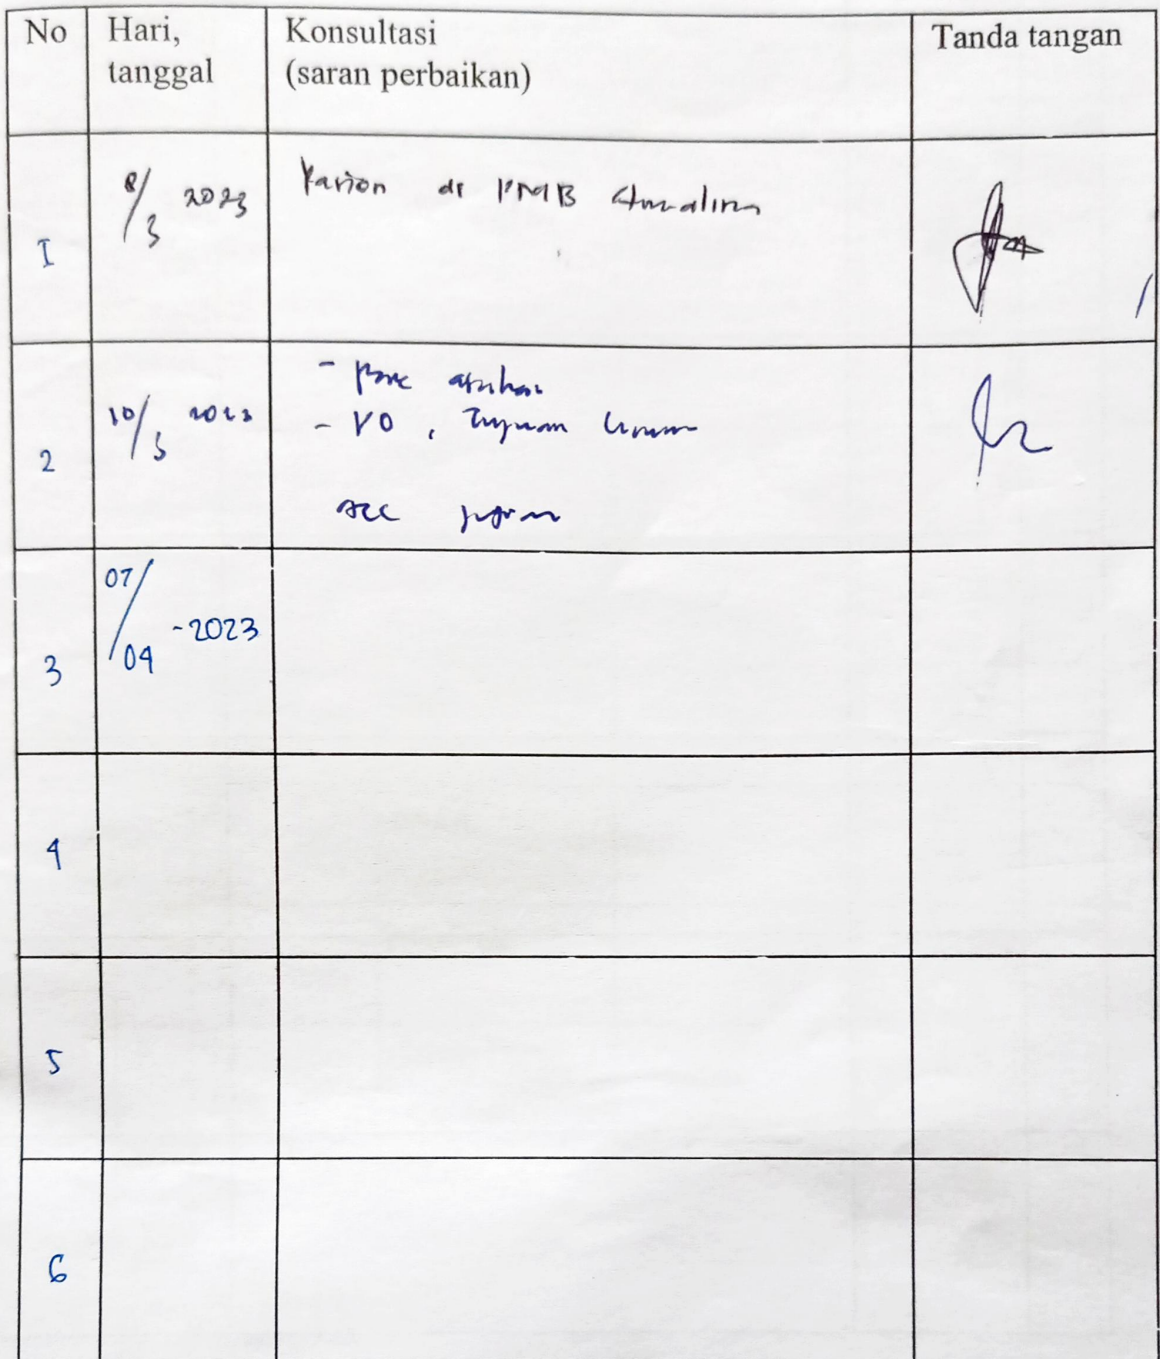 No Hari, tanggal Konsultasi (saran perbaikan) Tanda tangan
I 8/3 2023 di PMB
2 10/3 2023 - asuhan
- VO, Tujuan Umum
acc
3 07/04 - 2023
4
5
6